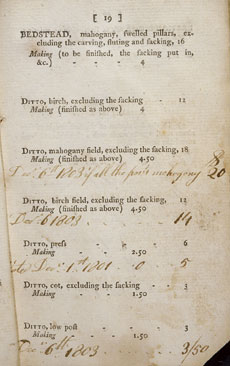 [ 19 ]
BEDSTEAD, mahogany, swelled pillars, ex-
cluding the carving, fluting and sacking, 16
Making (to be finished, the sacking put in,
&c.) - - - 4
DITTO, birch, excluding the sacking - 12
Making (finished as above) 4
DITTO, mahogany field, excluding the sacking, 18
Making (finished as above) 4.50
Dec. 6th 1803 if all the posts mahogany 20
DITTO, birch field, excluding the sacking, 12
Making (finished as above) 4.50
Dec. 6 1803 14
DITTO, press - - - 6
Making - - 2.50
Dec. 1st 1801 5
DITTO, cot, excluding the sacking - - 3
Making - - 1.50
DITTO, low post - - - 3
Making - - 1.50
Dec. 6th 1803 3/50